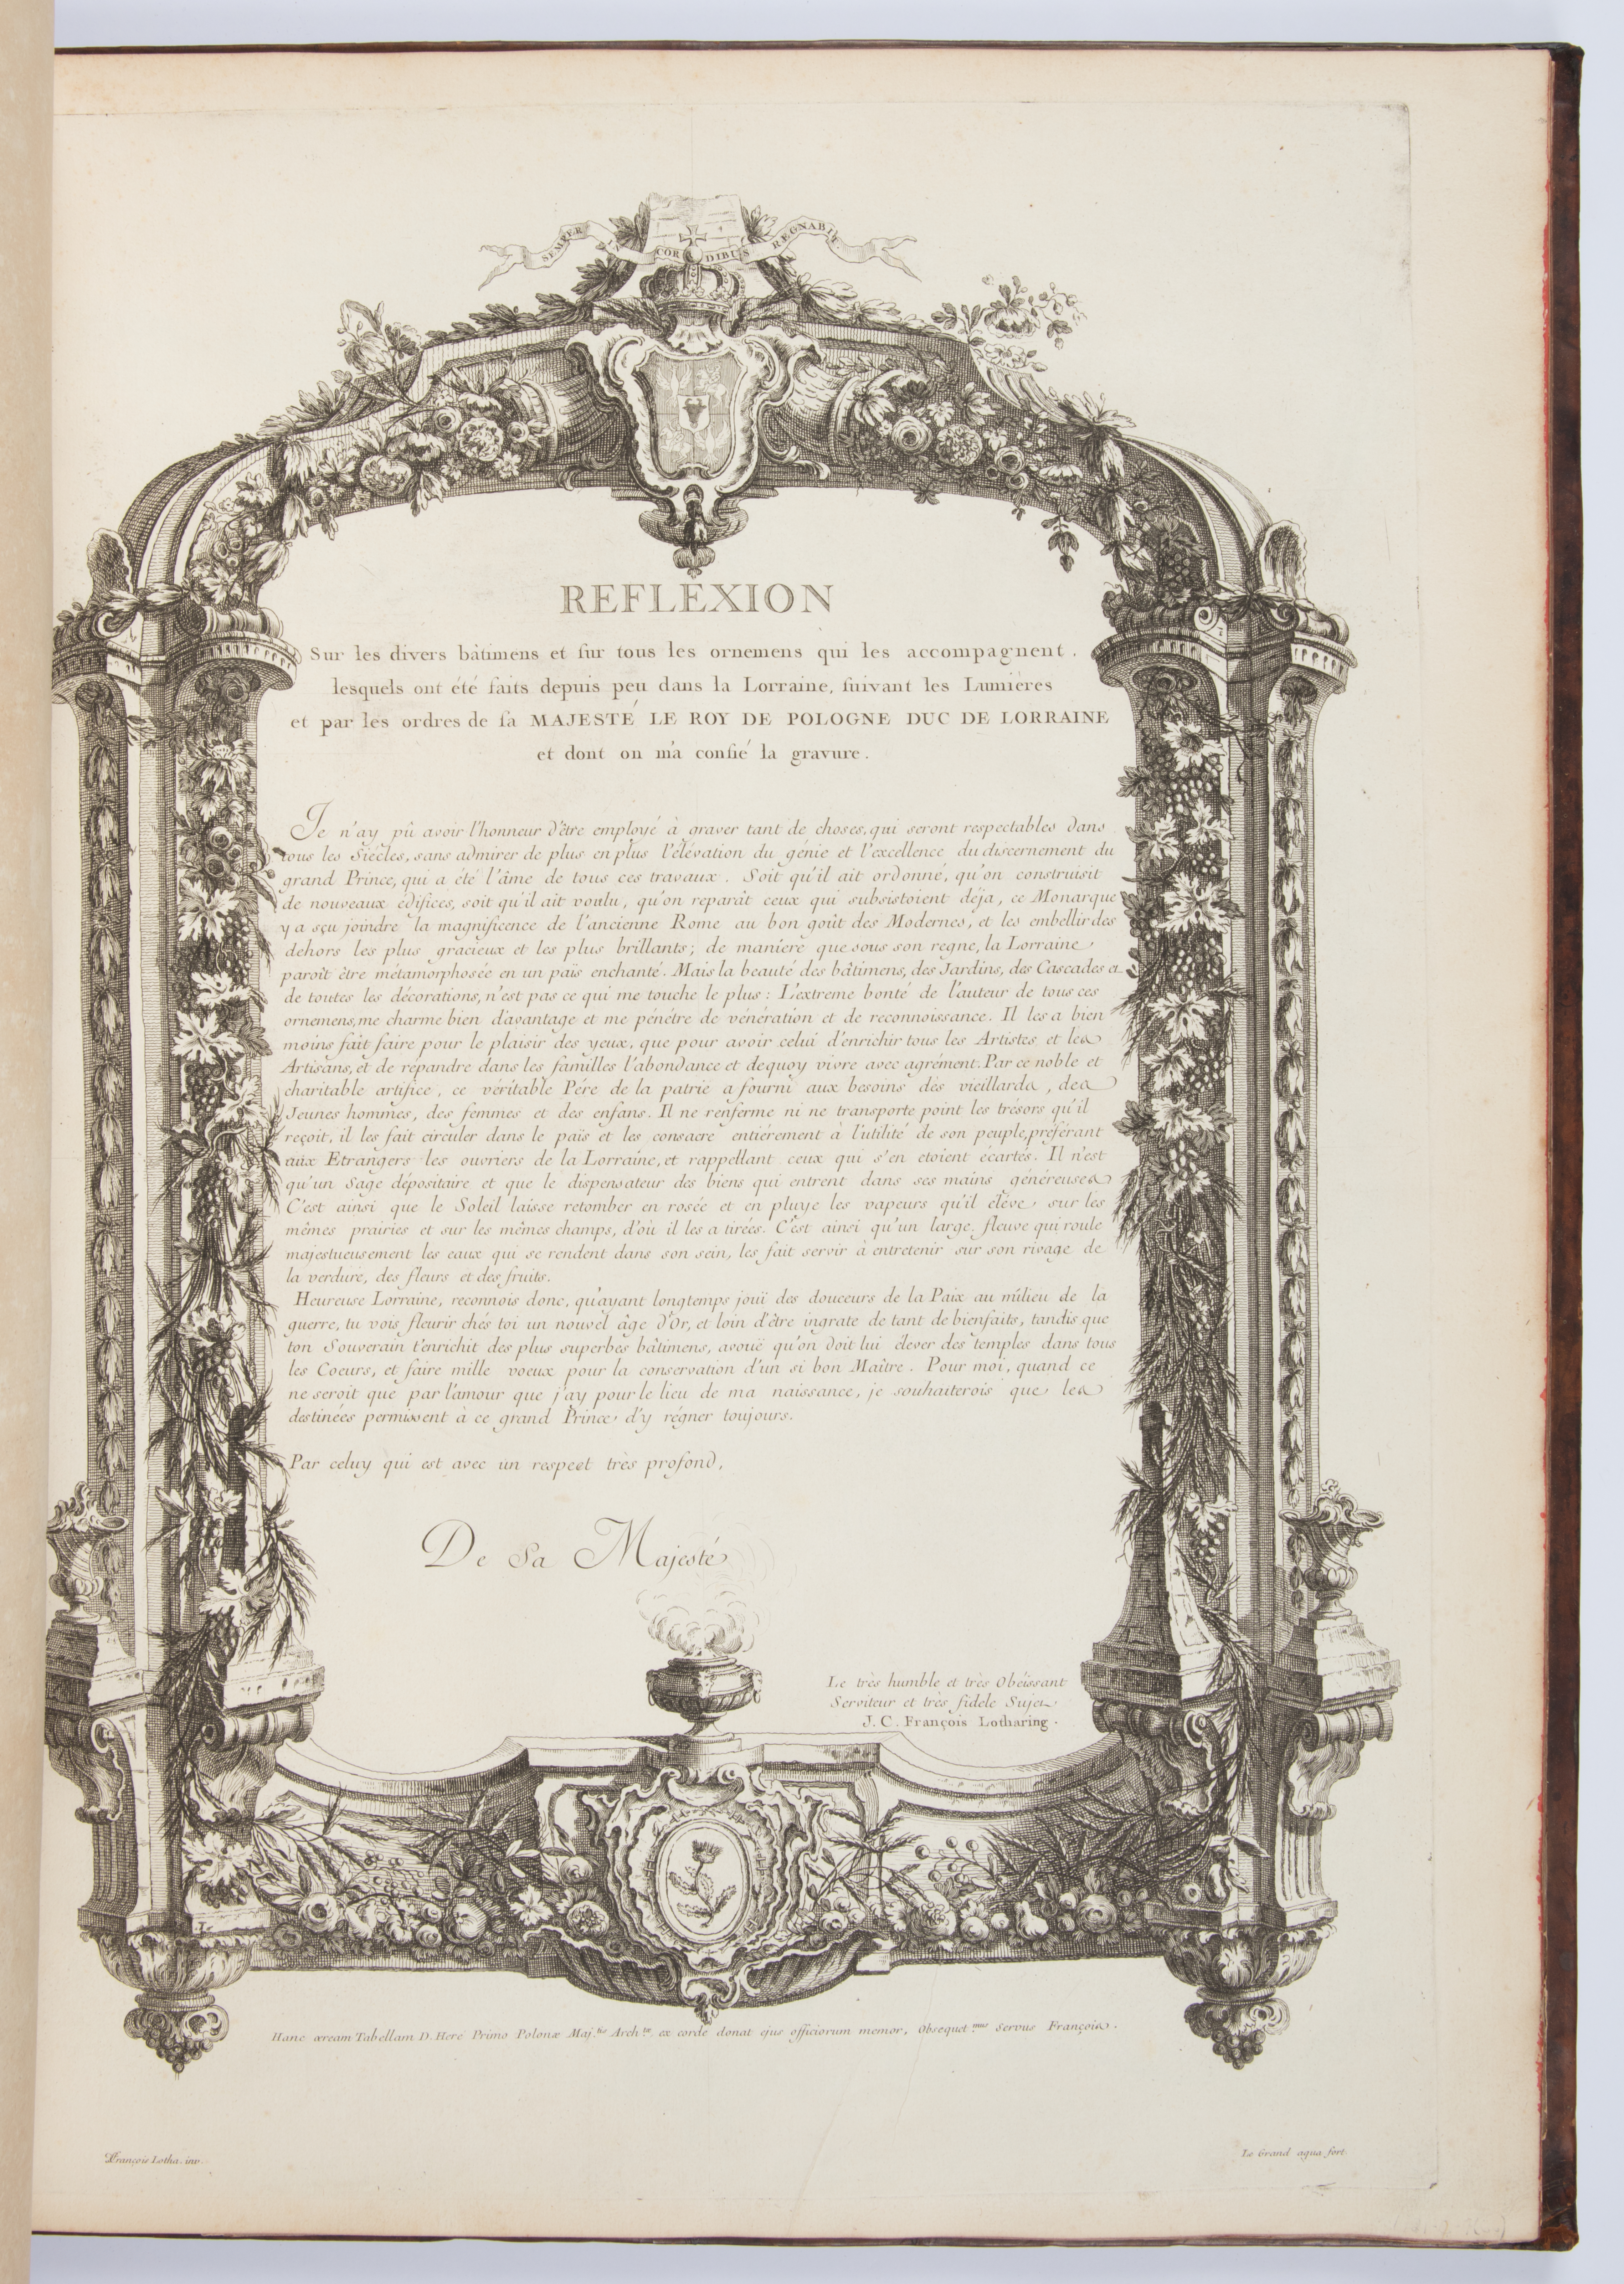 SEMPER IN CORDIBUS REGNABIT.
REFLEXION
Sur les divers bâtimens et sur tous les ornemens qui les accompagnent.
lesquels ont été faits depuis peu dans la Lorraine, suivant les Lumières
et par les ordres de sa MAJESTÉ LE ROY DE POLOGNE DUC DE LORRAINE
et dont on m'a confié la gravure.
Je n'ay pû avoir l'honneur d'être employé à graver tant de choses, qui seront respectables dans
tous les Siécles, sans admirer de plus en plus l'élévation du génie et l'excellence du discernement du
grand Prince, qui a été l'âme de tous ces travaux. Soit qu'il ait ordonné, qu'on construisit
de nouveaux édifices, soit qu'il ait voulu, qu'on reparât ceux qui subsistoient déja, ce Monarque
y a sçu joindre la magnificence de l'ancienne Rome au bon goût des Modernes, et les embellir des
dehors les plus gracieux et les plus brillants; de maniere que sous son regne, la Lorraine
paroît être métamorphosée en un païs enchanté. Mais la beauté des bâtimens, des Jardins, des Cascades et
de toutes les décorations, n'est pas ce qui me touche le plus: L'extreme bonté de l'auteur de tous ces
ornemens, me charme bien d'avantage et me pénétre de vénération et de reconnoissance. Il les a bien
moins fait faire pour le plaisir des yeux, que pour avoir celui d'enrichir tous les Artistes et les
Artisans, et de répandre dans les familles l'abondance et dequoy vivre avec agrément. Par ce noble et
charitable artifice, ce véritable Pére de la patrie a fourni aux besoins des vieillards, des
Jeunes hommes, des femmes et des enfans. Il ne renferme ni ne transporte point les trésors qu'il
reçoit, il les fait circuler dans le païs et les consacre entiérement à l'utilité de son peuple, préférant
aux Etrangers les ouvriers de la Lorraine, et rappellant ceux qui s'en etoient écartés. Il n'est
qu'un Sage dépositaire et que le dispensateur des biens qui entrent dans ses mains généreuses
C'est ainsi que le Soleil laisse retomber en rosée et en pluye les vapeurs qu'il éléve sur les
mêmes prairies et sur les mêmes champs, d'où il les a tirées. C'est ainsi qu'un large fleuve qui roule
majestueusement les eaux qui se rendent dans son sein, les fait servir à entretenir sur son rivage de
la verdure, des fleurs et des fruits.
Heureuse Lorraine, reconnois donc, qu'ayant longtemps joüi des douceurs de la Paix au milieu de la
guerre, tu vois fleurir chés toi un nouvel âge d'Or, et loin d'être ingrate de tant de bienfaits, tandis que
ton Souverain t'enrichit des plus superbes bâtimens, avoüe qu'on doit lui élever des temples dans tous
les Coeurs, et faire mille voeux pour la conservation d'un si bon Maître. Pour moi, quand ce
ne seroit que par l'amour que j'ay pour le lieu de ma naissance, je souhaiterois que les
destinées permissent à ce grand Prince d'y régner toujours.
Par celuy qui est avec un respect très profond,
De Sa Majesté
Le très humble et très Obéissant
Serviteur et très fidele Sujet
J. C. François Lotharing.
Hanc æream Tabellam D. Heré Primo Polonæ Maj.tis Arch.tæ ex corde donat ejus officiorum memor, Obsequet.mus Servus François.
François Lotha. inv.
Le Grand aqua fort.